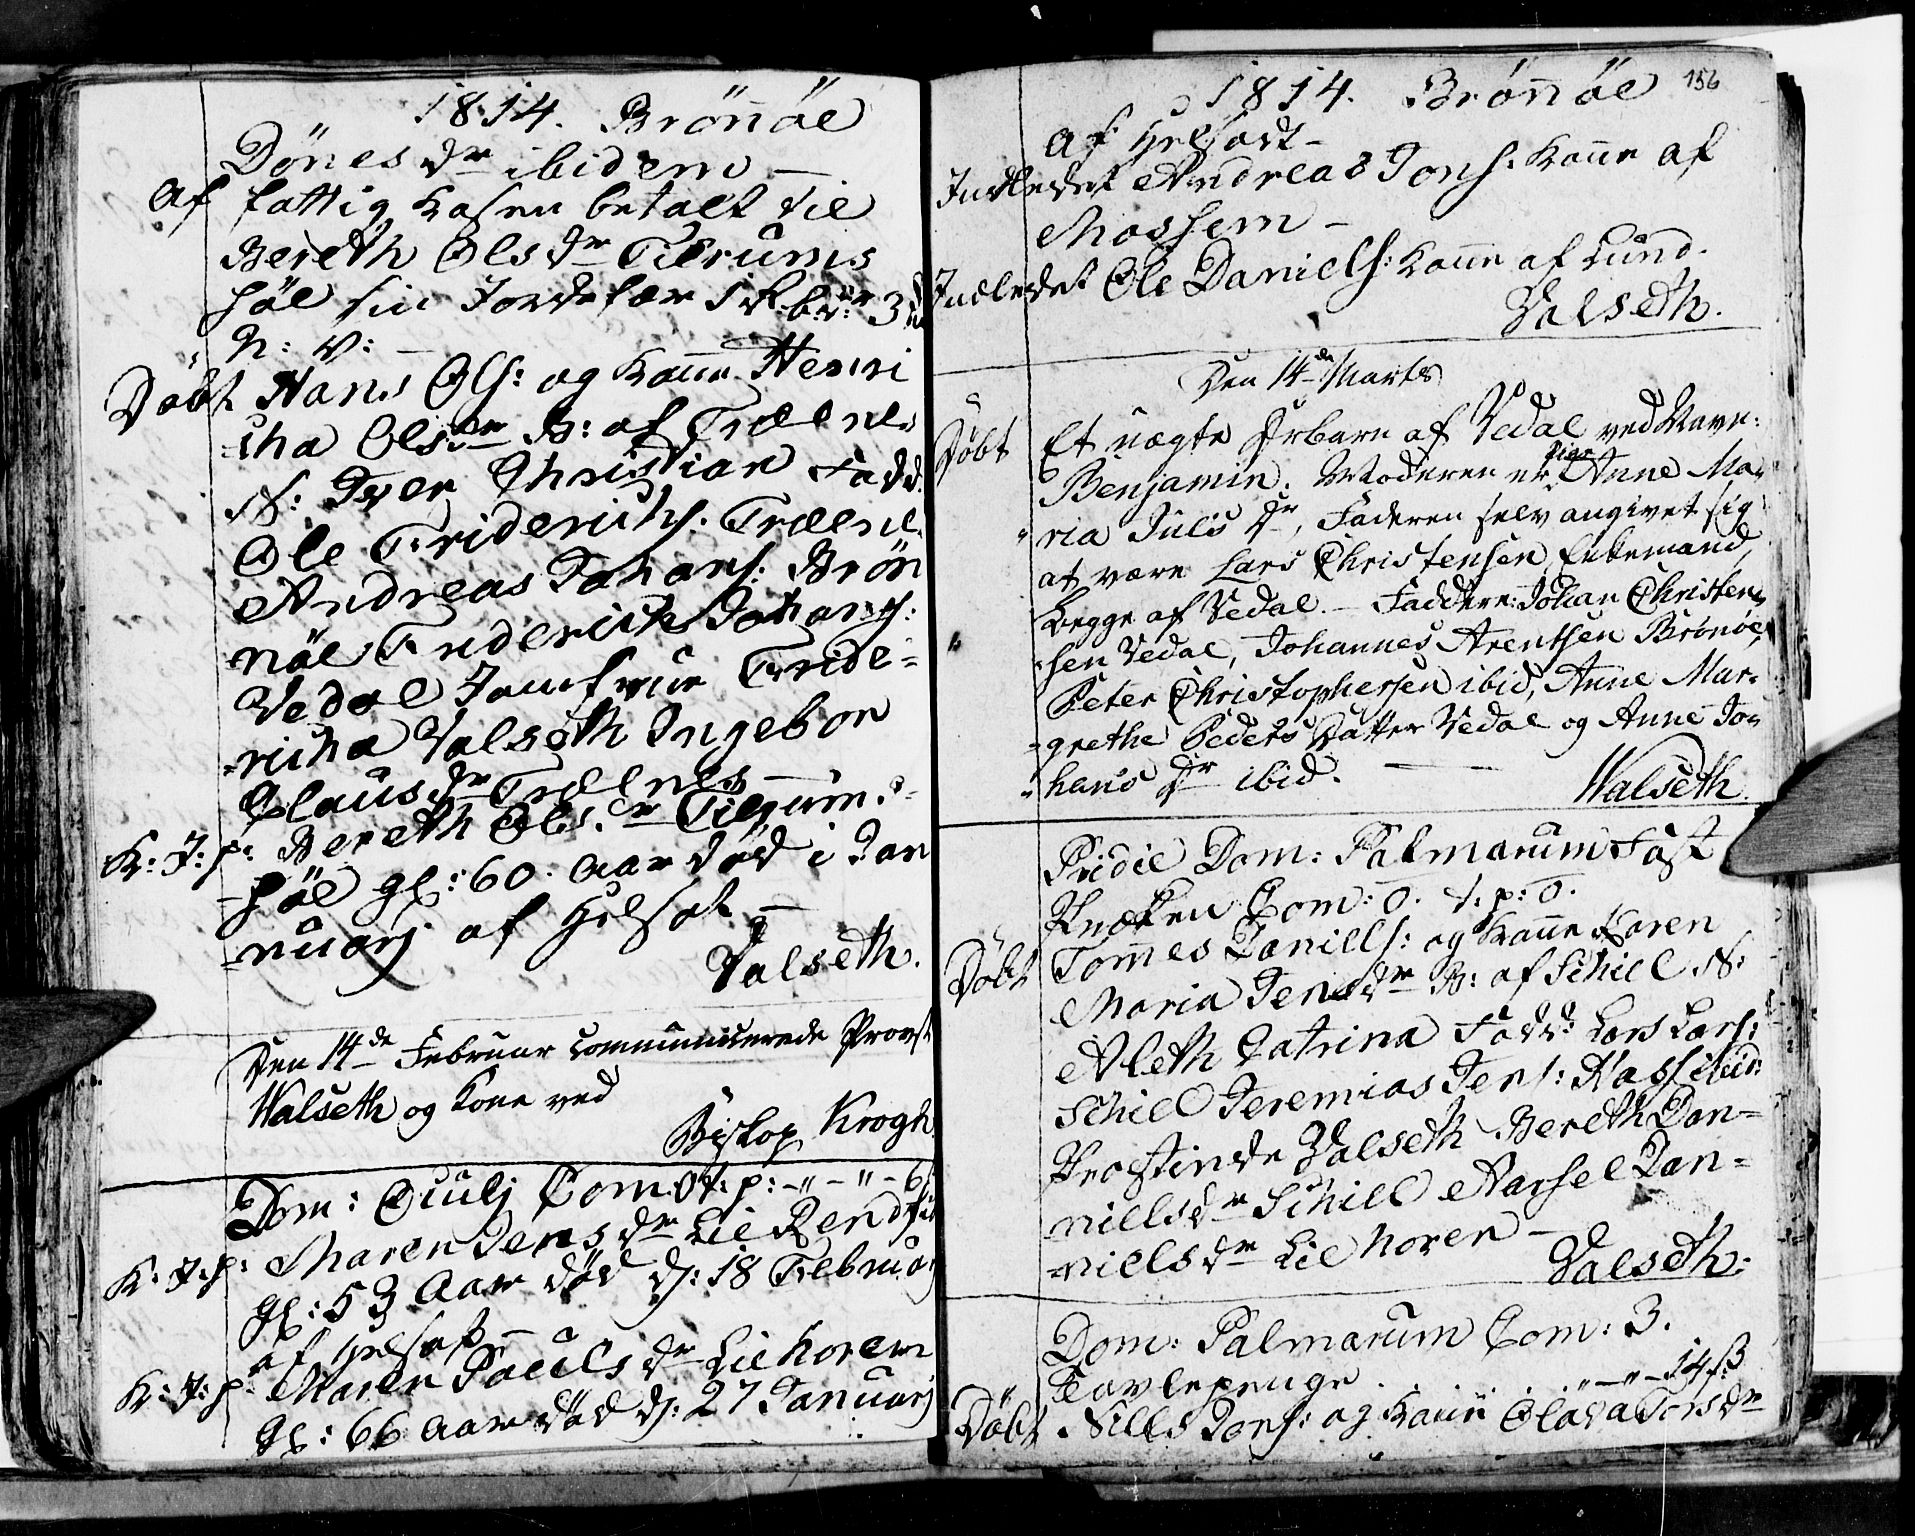 1814. Brönöe
Dönesdr ibidem —
Af fattig Kasen betalt til
Bereth Olsdr Tilrums
höl sin Jordefær 1 Rbdr 3
N: V: —
Döbt Hans Ols: og Kone Henri
cha Olsdr B: af Trælnes
N: Iver Christian Fadd:
Ole Friderichs. Trælnes
Andreas Johans: Brön
nöe Friderich Johans:
Vedal Jomfrue Fride=
=richa Valseth Ingebor
Clausdr Trælnes —
K: J: p: Bereth Ols.dr Tilrum.s=
höl gl: 60. Aar död i Jan
=nuarj af Helsot —
Valseth.
Den 14de Februar communicerede Provst
Walseth og Kone ved
Biskop Krogh
Dom: Oculj Com: 0 t: p: -"-"- 6
K: J: p: Maren Jensdr Lie
gl: 53 Aar död d: 18 Februarj
af Helsot —
K: J: p: Maren Pauelsdr Liehoren
gl: 66 Aar död d: 27 Januarj
1814. Brönöe 156
af Helsodt —
Indledet Andreas Jons: Kone af
Mosheem —
Indledet Ole Daniels: Kone af Lund.
Valseth.
Den 14de Marts
Döbt Et uægte Drbarn af Vedal ved Navn:
Benjamin. Moderen er Pige Anne Ma=
"ria Juls Dr, Faderen selv angivet sig
at være Lars Christensen Enkemand,
begge af Vedal. — Faddere: Johan Christen=
"sen Vedal, Johannes Arentsen Brönöe,
Peter Christophersen ibid, Anne Mar=
"grethe Peders Datter Vedal og Anne Jo=
"hans Dr ibid. —
Walseth.
Pridie Dom: Palmarum Fast
Præken Com: 0. t: p: 0.
Döbt Tomes Daniels: og Kone Karen
Maria Jensdr B: af Schiel N:
Aleth Catrina Fadd: Lars Lars:
Schiel Jeremias Jens: ibid:
Prostinde Valseth Bereth Dan=
nielsdr Schiel Aarsel Dan=
=nielsdr Liehoren —
Valseth:
Dom: Palmarum Com: 3.
Tavlepenge . "—"—14 ß
Döbt Niels Jons: og Kone Olava Torsdr